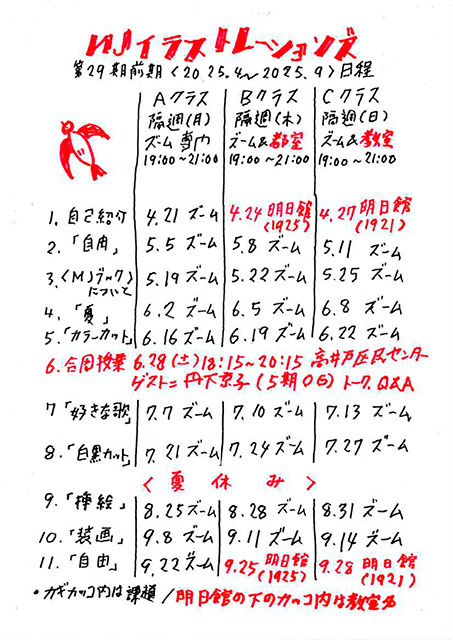 MJイラストレーションズ
第29期前期〈2025.4〜2025.9〉日程
Aクラス Bクラス Cクラス
隔週(月) 隔週(木) 隔週(日)
ズーム専門 ズーム&教室 ズーム&教室
19:00~21:00 19:00~21:00 19:00~21:00
1.自己紹介 4.21 ズーム 4.24 明日館(1925) 4.27 明日館(1921)
2.「自由」 5.5 ズーム 5.8 ズーム 5.11 ズーム
3.〈MJブック〉について 5.19 ズーム 5.22 ズーム 5.25 ズーム
4.「夏」 6.2 ズーム 6.5 ズーム 6.8 ズーム
5.「カラーカット」 6.16 ズーム 6.19 ズーム 6.22 ズーム
6.合同授業 6.28(土)18:15~20:15 高井戸区民センター
ゲスト=丹下京子(5期OG)トーク、Q&A
7「好きな歌」 7.7 ズーム 7.10 ズーム 7.13 ズーム
8.「白黒カット」 7.21 ズーム 7.24 ズーム 7.27 ズーム
〈夏休み〉
9.「挿絵」 8.25 ズーム 8.28 ズーム 8.31 ズーム
10.「装画」 9.8 ズーム 9.11 ズーム 9.14 ズーム
11.「自由」 9.22 ズーム 9.25 明日館(1925) 9.28 明日館(1921)
・カギカッコ内は課題/明日館の下のカッコ内は教室名